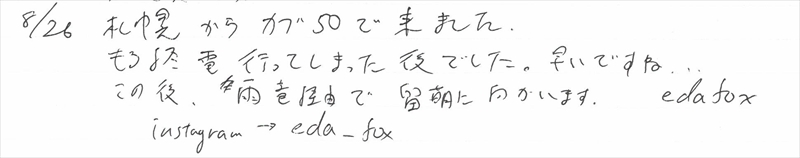 8/26 札幌からカブ50で来ました.
もう終電行ってしまった後でした。早いですね...
この後、雨竜経由で留萌に向かいます. edafox
instagram → eda_fox